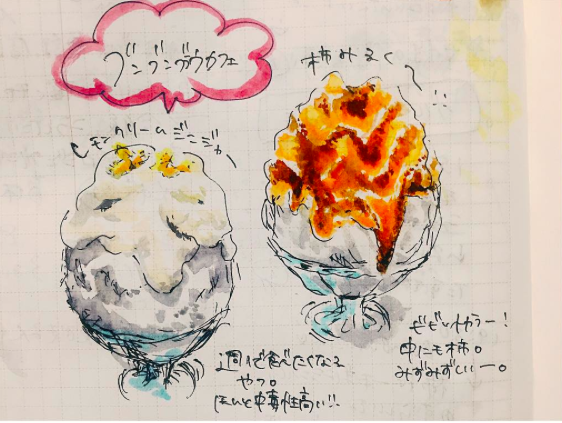 ブンブンブウカフェ
柿みるく
!!
レモンクリームジンジャー
週1で食べたくなる
やつ。
ほんと中毒性高い!!
ビビットカラー!
中にも柿。
みずみずしいー。